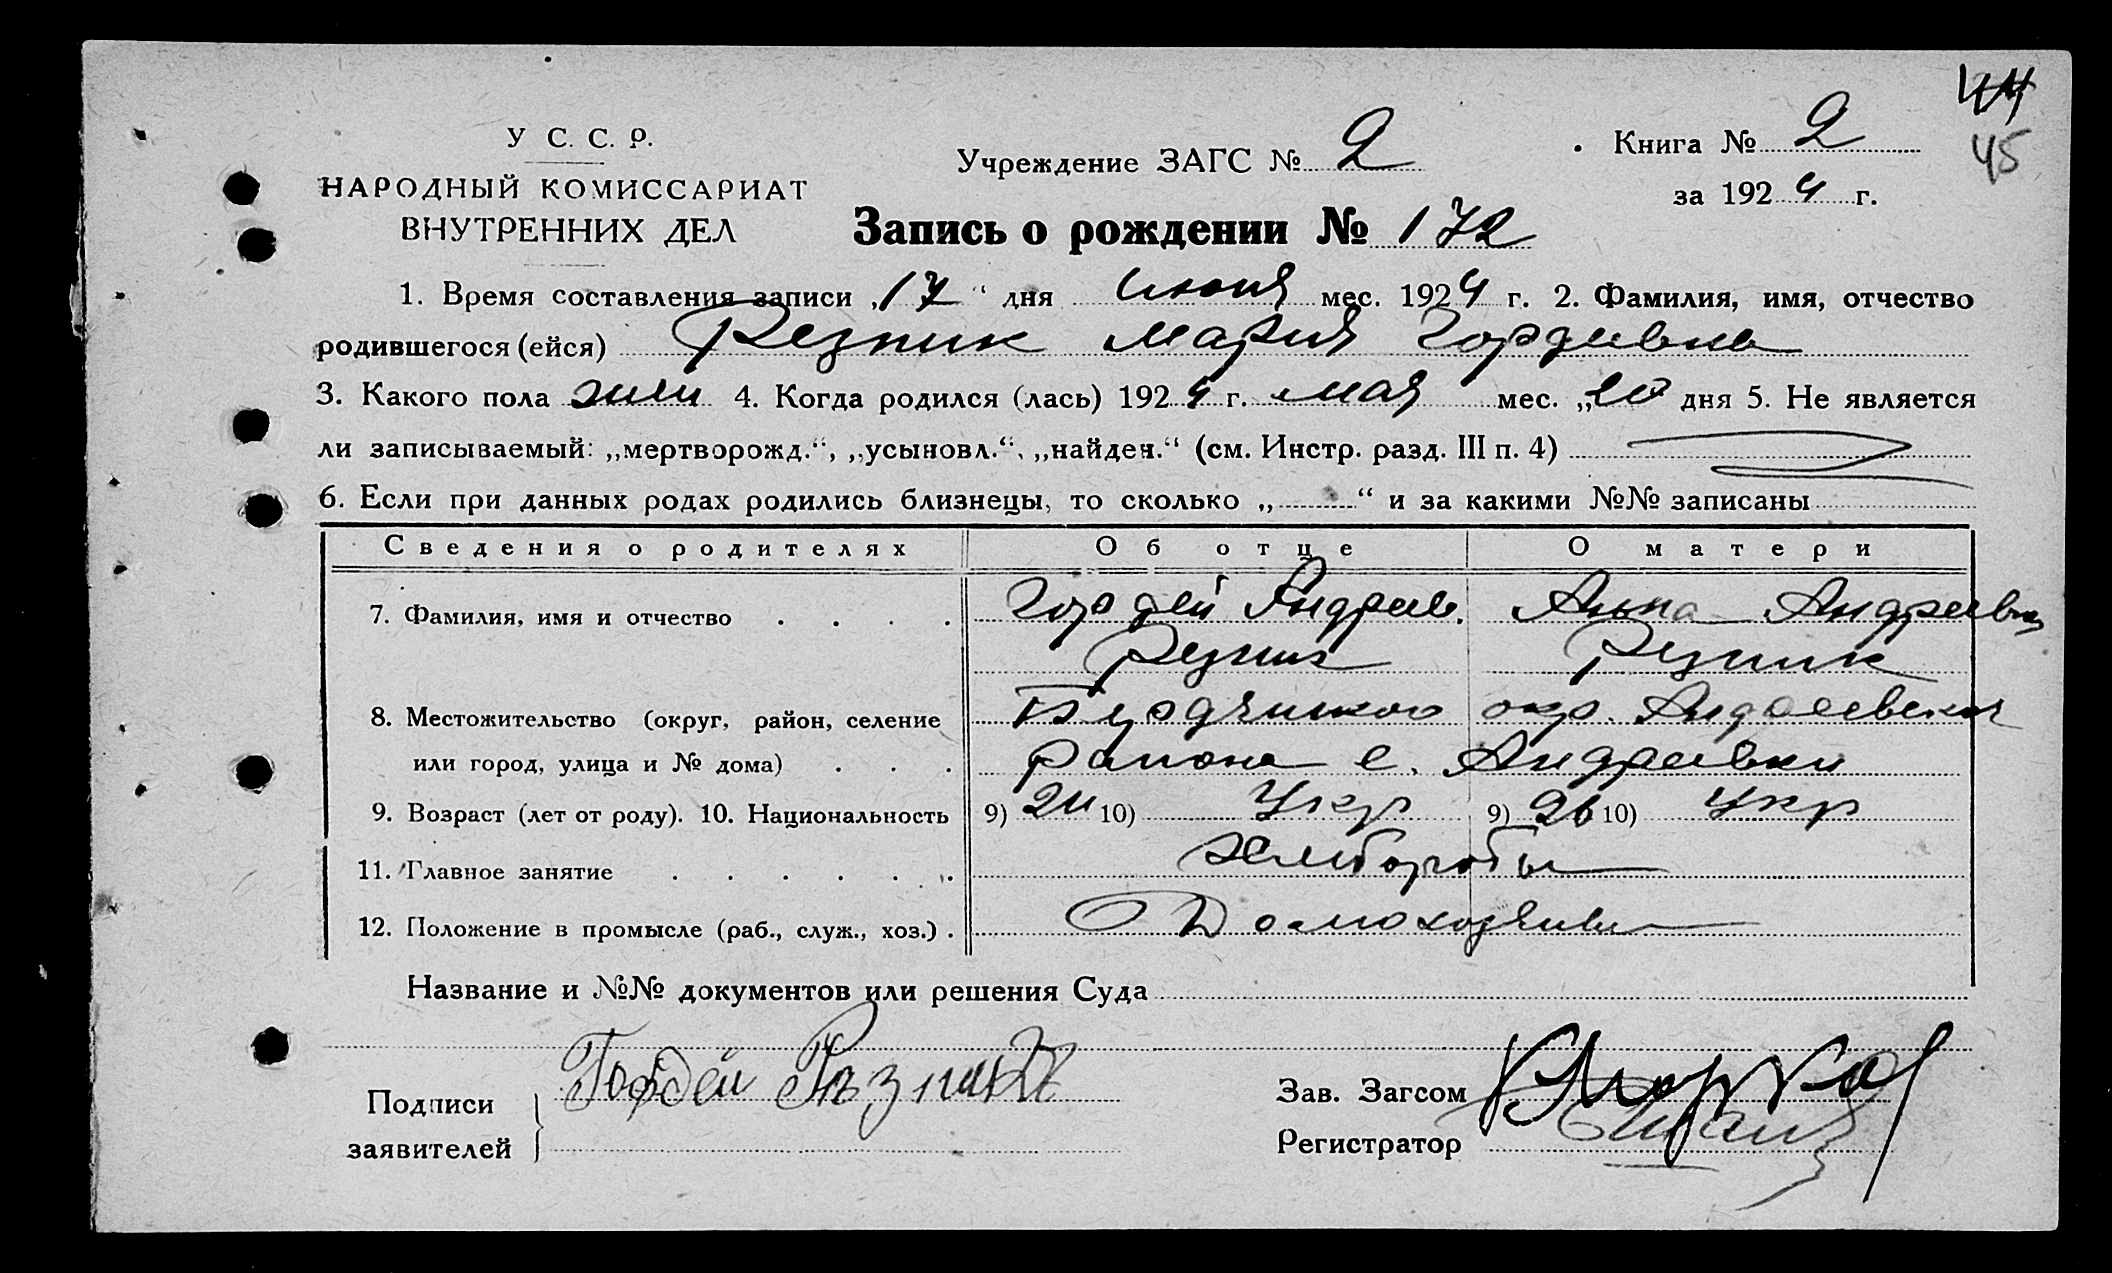 44
45
У С. С. Р.
НАРОДНЫЙ КОМИССАРИАТ
ВНУТРЕННИХ ДЕЛ
Учреждение ЗАГС № 2
Книга № 2
за 1924 г.
Запись о рождении № 172
1. Время составления записи „17“ дня июня мес. 1924 г. 2. Фамилия, имя, отчество
родившегося (ейся) Резник Мария Гордеевна
3. Какого пола жен 4. Когда родился (лась) 1924 г. мая мес. „20 дня 5. Не является
ли записываемый: „мертворожд.“, „усыновл.“, „найден.“ (см. Инстр. разд. III п. 4)
6. Если при данных родах родились близнецы, то сколько „ “ и за какими №№ записаны
Сведения о родителях Об отце О матери
7. Фамилия, имя и отчество Гордей Андреев. Анна Андреевна
Резник Резник
8. Местожительство (округ, район, селение окр. Андреевского
или город, улица и № дома) района с. Андреевки
9. Возраст (лет от роду). 10. Национальность 9) 24 10) Укр 9) 26 10) Укр
11. Главное занятие Хлеборобы
12. Положение в промысле (раб., служ., хоз.)
Название и №№ документов или решения Суда
Подписи
заявителей
Гордей Рѣзникъ
Зав. Загсом
Регистратор